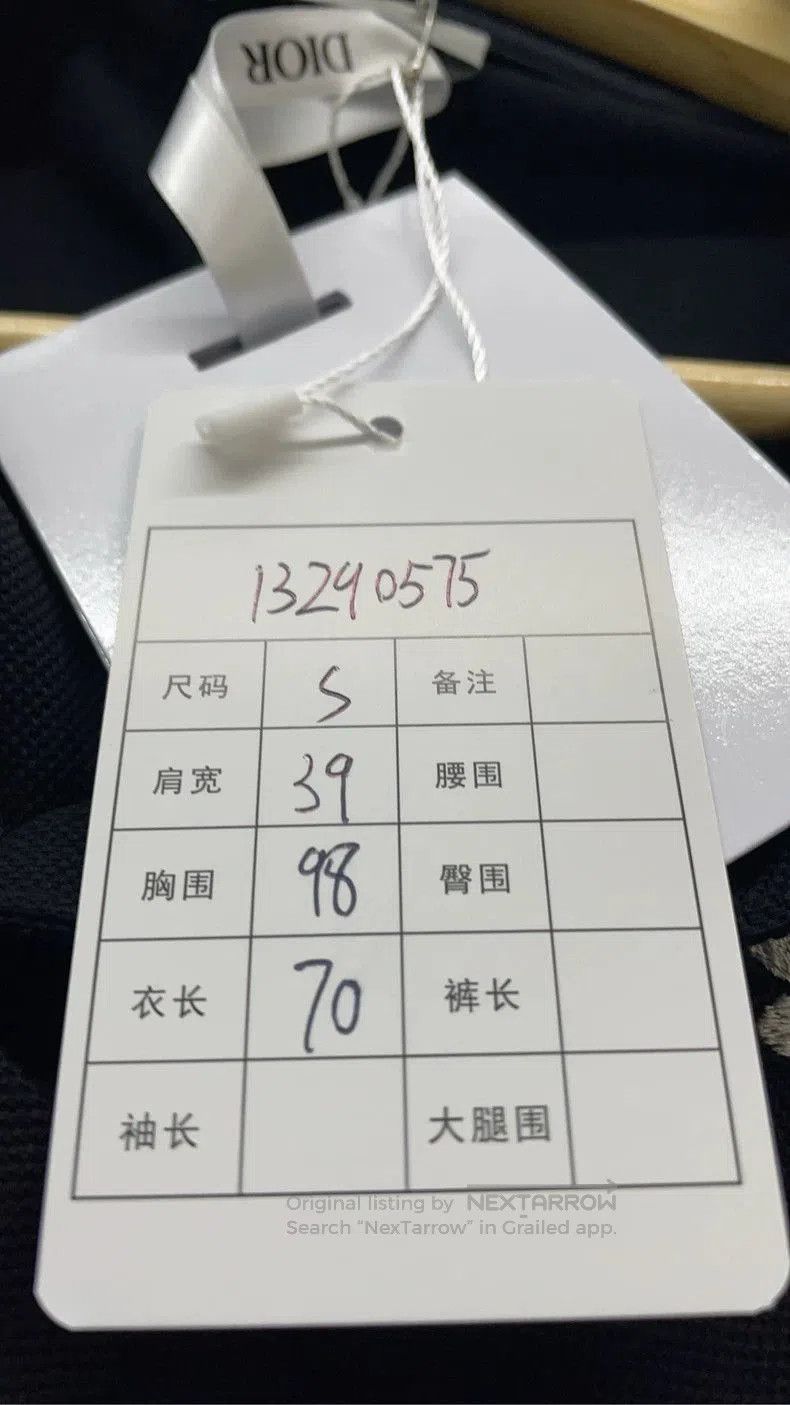 DIOR
13290575
尺码 S 备注
肩宽 39 腰围
胸围 98 臀围
衣长 70 裤长
袖长 大腿围
Original listing by NEXTARROW
Search "NexTarrow" in Grailed app.